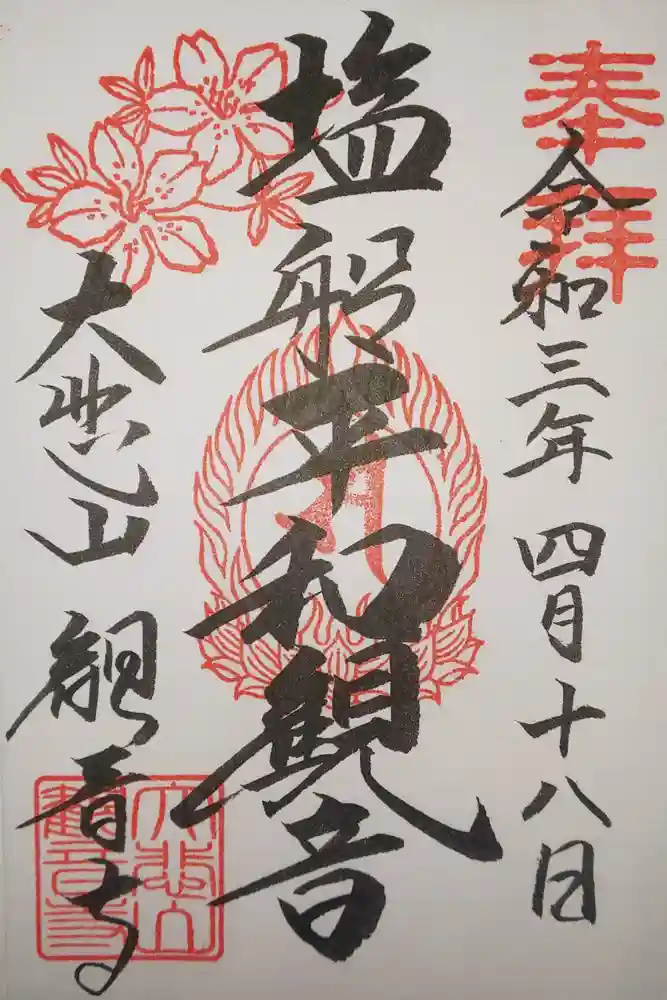 奉拝
令和三年四月十八日
塩船平和観音
大悲山 観音寺
大悲山
観音寺